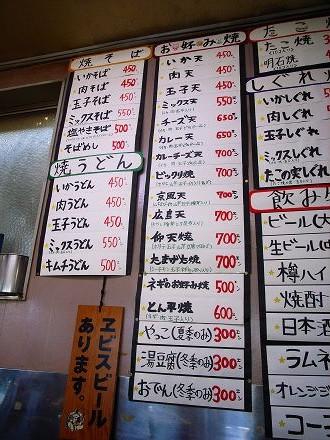 焼そば
いかそば 450
肉そば 450
玉子そば 450
ミックスそば 550
塩やきそば 500
そばめし 500
焼うどん
いかうどん 450
肉うどん 450
玉子うどん 450
ミックスうどん 550
キムチうどん 500
お好み焼
いか天 450
肉天 450
玉子天 450
ミックス天 550
チーズ天 650
カレー天 650
カレーチーズ天 700
ビックリ焼 700
京風天 700
広島天 700
仰天焼 700
たまずさ焼 700
ネギのお好み焼 500
とん平焼 600
やっこ(夏季のみ) 300
湯豆腐(冬季のみ) 300
おでん(冬季のみ) 300
ヱビスビール
あります。
たこ
たこ焼 300
明石焼
しぐれ
いかしぐれ
肉しぐれ
玉子しぐれ
ミックスしぐれ
たこの実しぐれ
飲み
ビール(大
生ビール(中
樽ハイ
焼酎
日本酒
ラムネ
オレンジ
コー